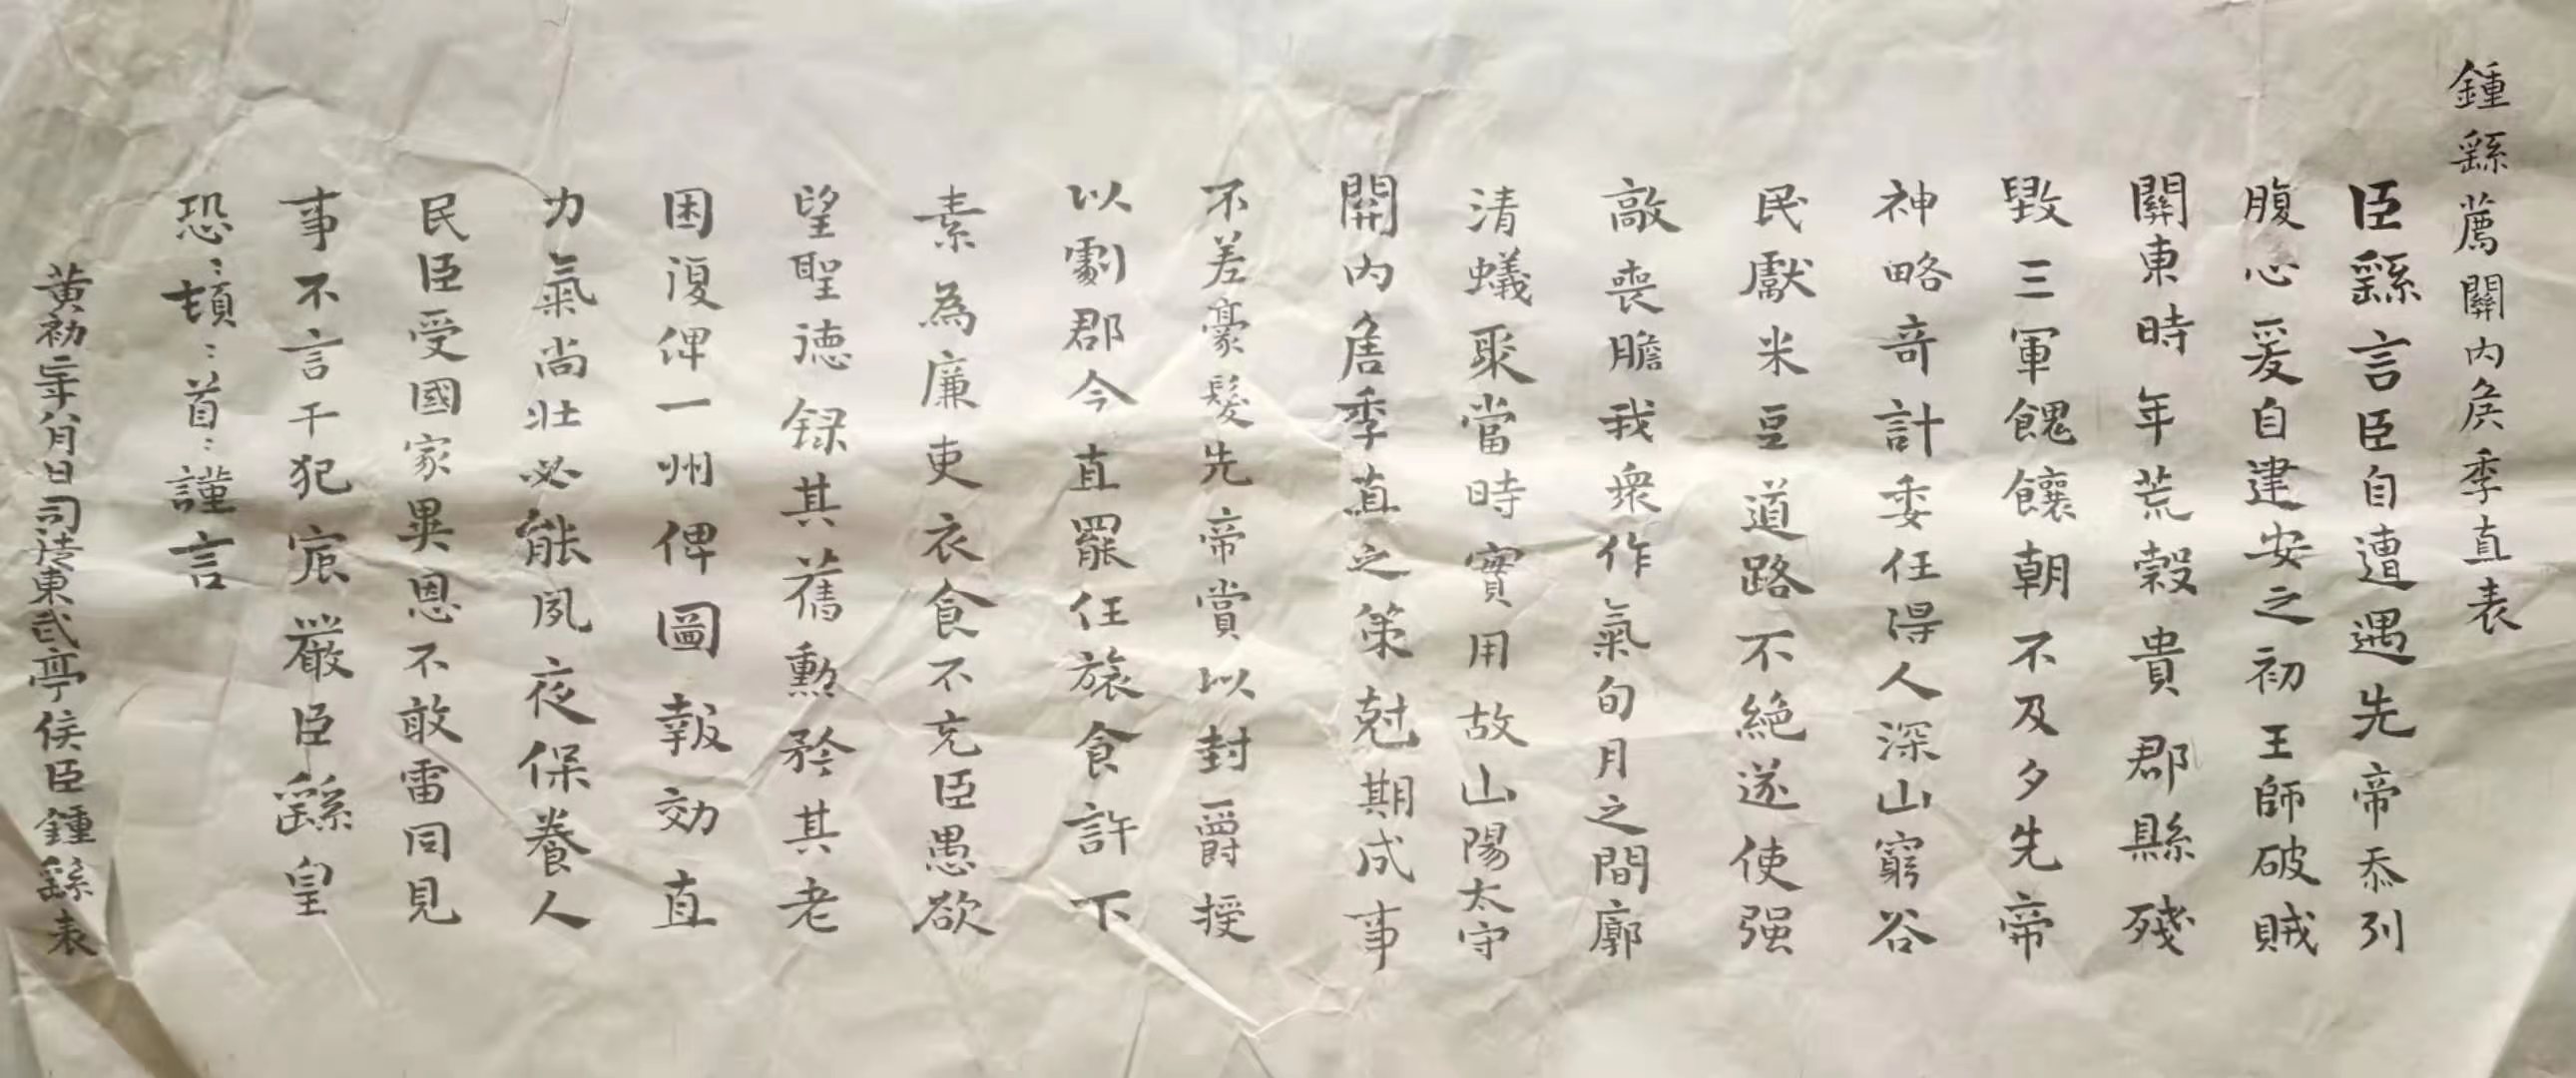 鍾繇薦關内侯季直表
臣繇言臣自遭遇先帝忝列
腹心爰自建安之初王師破賊
關東時年荒穀貴郡縣殘
毀三軍餽饟朝不及夕先帝
神略奇計委任得人深山窮谷
民獻米豆道路不絕遂使强
敵喪膽我衆作氣旬月之間廓
清蟻聚當時實用故山陽太守
關内侯季直之策尅期成事
不差豪髮先帝賞以封爵授
以劇郡今直罷任旅食許下
素為廉吏衣食不充臣愚欲
望聖德録其舊勳矜其老
困復俾一州俾圖報効直
力氣尚壯必能夙夜保養人
民臣受國家異恩不敢雷同見
事不言干犯宸嚴臣繇皇
恐〻頓〻首〻謹言
黄初二年八月日司徒東武亭侯臣鍾繇表